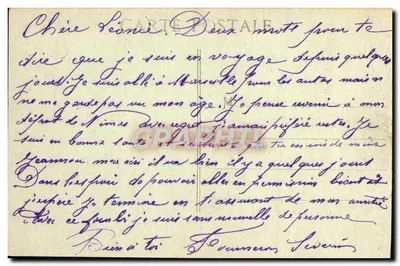 CARTE POSTALE
Chère Léonie. Deux mots pour te
dire que je suis en voyage depuis quelques
jours. Je suis allé à Marseille pour les autres mais on
ne me garde pas vu mon âge. Je pense revenir à mon
dépot de Nimes avec regret j'aurais préféré rester. Je
suis en bonne santé et
mais il va bien il y a quelques jours
Dans l'espoir de pouvoir aller en permission bientôt
j'espère Je termine en t'assurant de mon amitié
Avec ce fourbi je suis sans nouvelle de personne
Bien à toi Severin